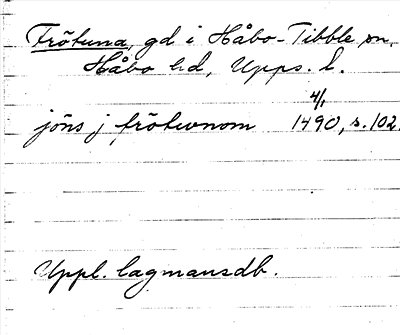 Frötuna, gd i Håbo-Tibble sn,
Håbo hd, Upps. l.
4/1
jöns j frötwnom 1490, s. 102.
Uppl. lagmansdb.